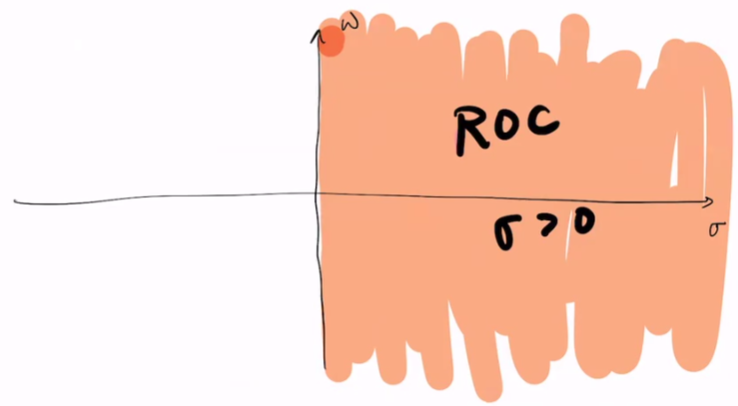 ω
ROC
σ > 0
σ